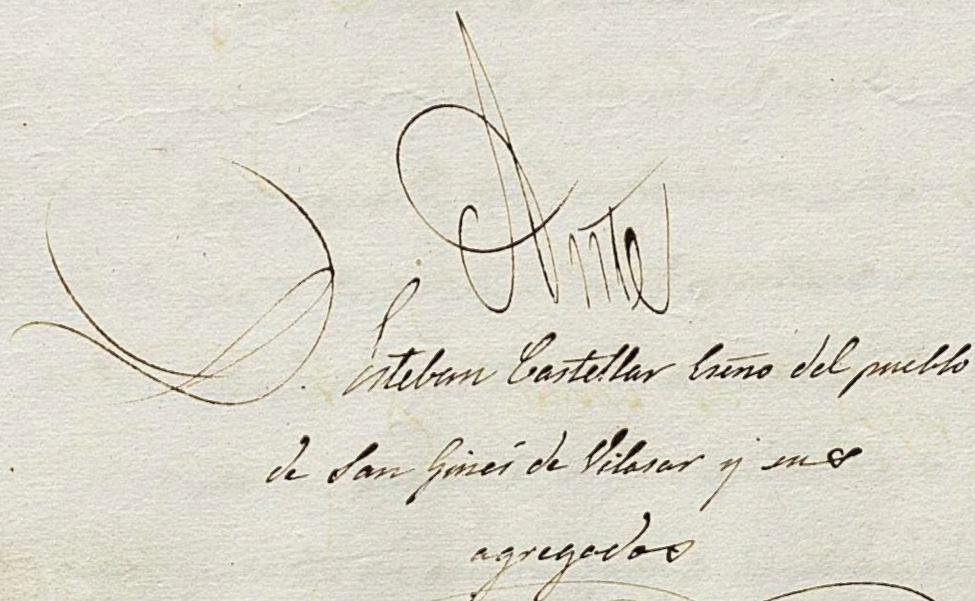 Ante
D. Esteban Castellar Esno del pueblo
de San Ginés de Vilasar y sus
agregados